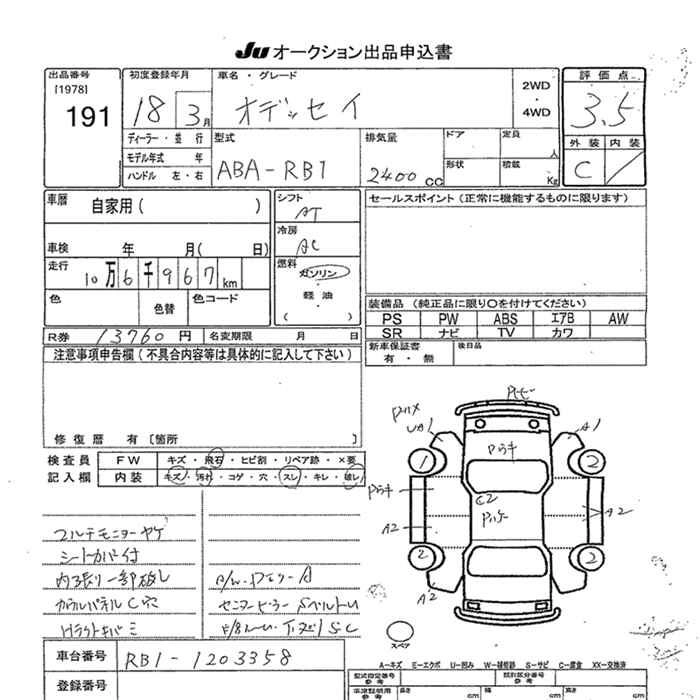 Ju オークション出品申込書
出品番号
[1978]
191
初度登録年月
18 3月
車名・グレード
オデッセイ
2WD
・
4WD
評価点
3.5
外装 内装
C
ディーラー・並行
モデル年式 年
ハンドル 左・右
型式
ABA-RB1
排気量
2400 cc
ドア
形状
定員
人
積載
Kg
車暦
自家用( )
車検 年 月( 日)
走行
10万6千967km
色
色替
色コード
シフト
AT
冷房
AC
燃料
ガソリン
・
軽油
( )
セールスポイント(正常に機能するものに限ります)
装備品 (純正品に限り○を付けてください)
PS PW ABS エアB AW
SR ナビ TV カワ
R券 13760 円
名変期限 月 日
新車保証書
有・無
後日品
注意事項申告欄(不具合内容等は具体的に記入して下さい)
修復歴 有〔箇所 〕
検査員
記入欄
FW キズ・飛石・ヒビ割・リペア跡・×要
内装 キズ・汚れ・コゲ・穴・スレ・キレ・破レ
マルチモニターヤケ
シートカバー付
内張り一部破レ
カウルパネルC穴
A1
1
2
C2
A2
A2
2
2
A2
スペア
A-キズ E-エクボ U-凹み W-補修跡 S-サビ C-腐食 XX-交換済
車台番号
RB1-1203358
登録番号
型式指定番号
参考
類別区分番号
参考
長さ cm 幅 cm 高さ cm